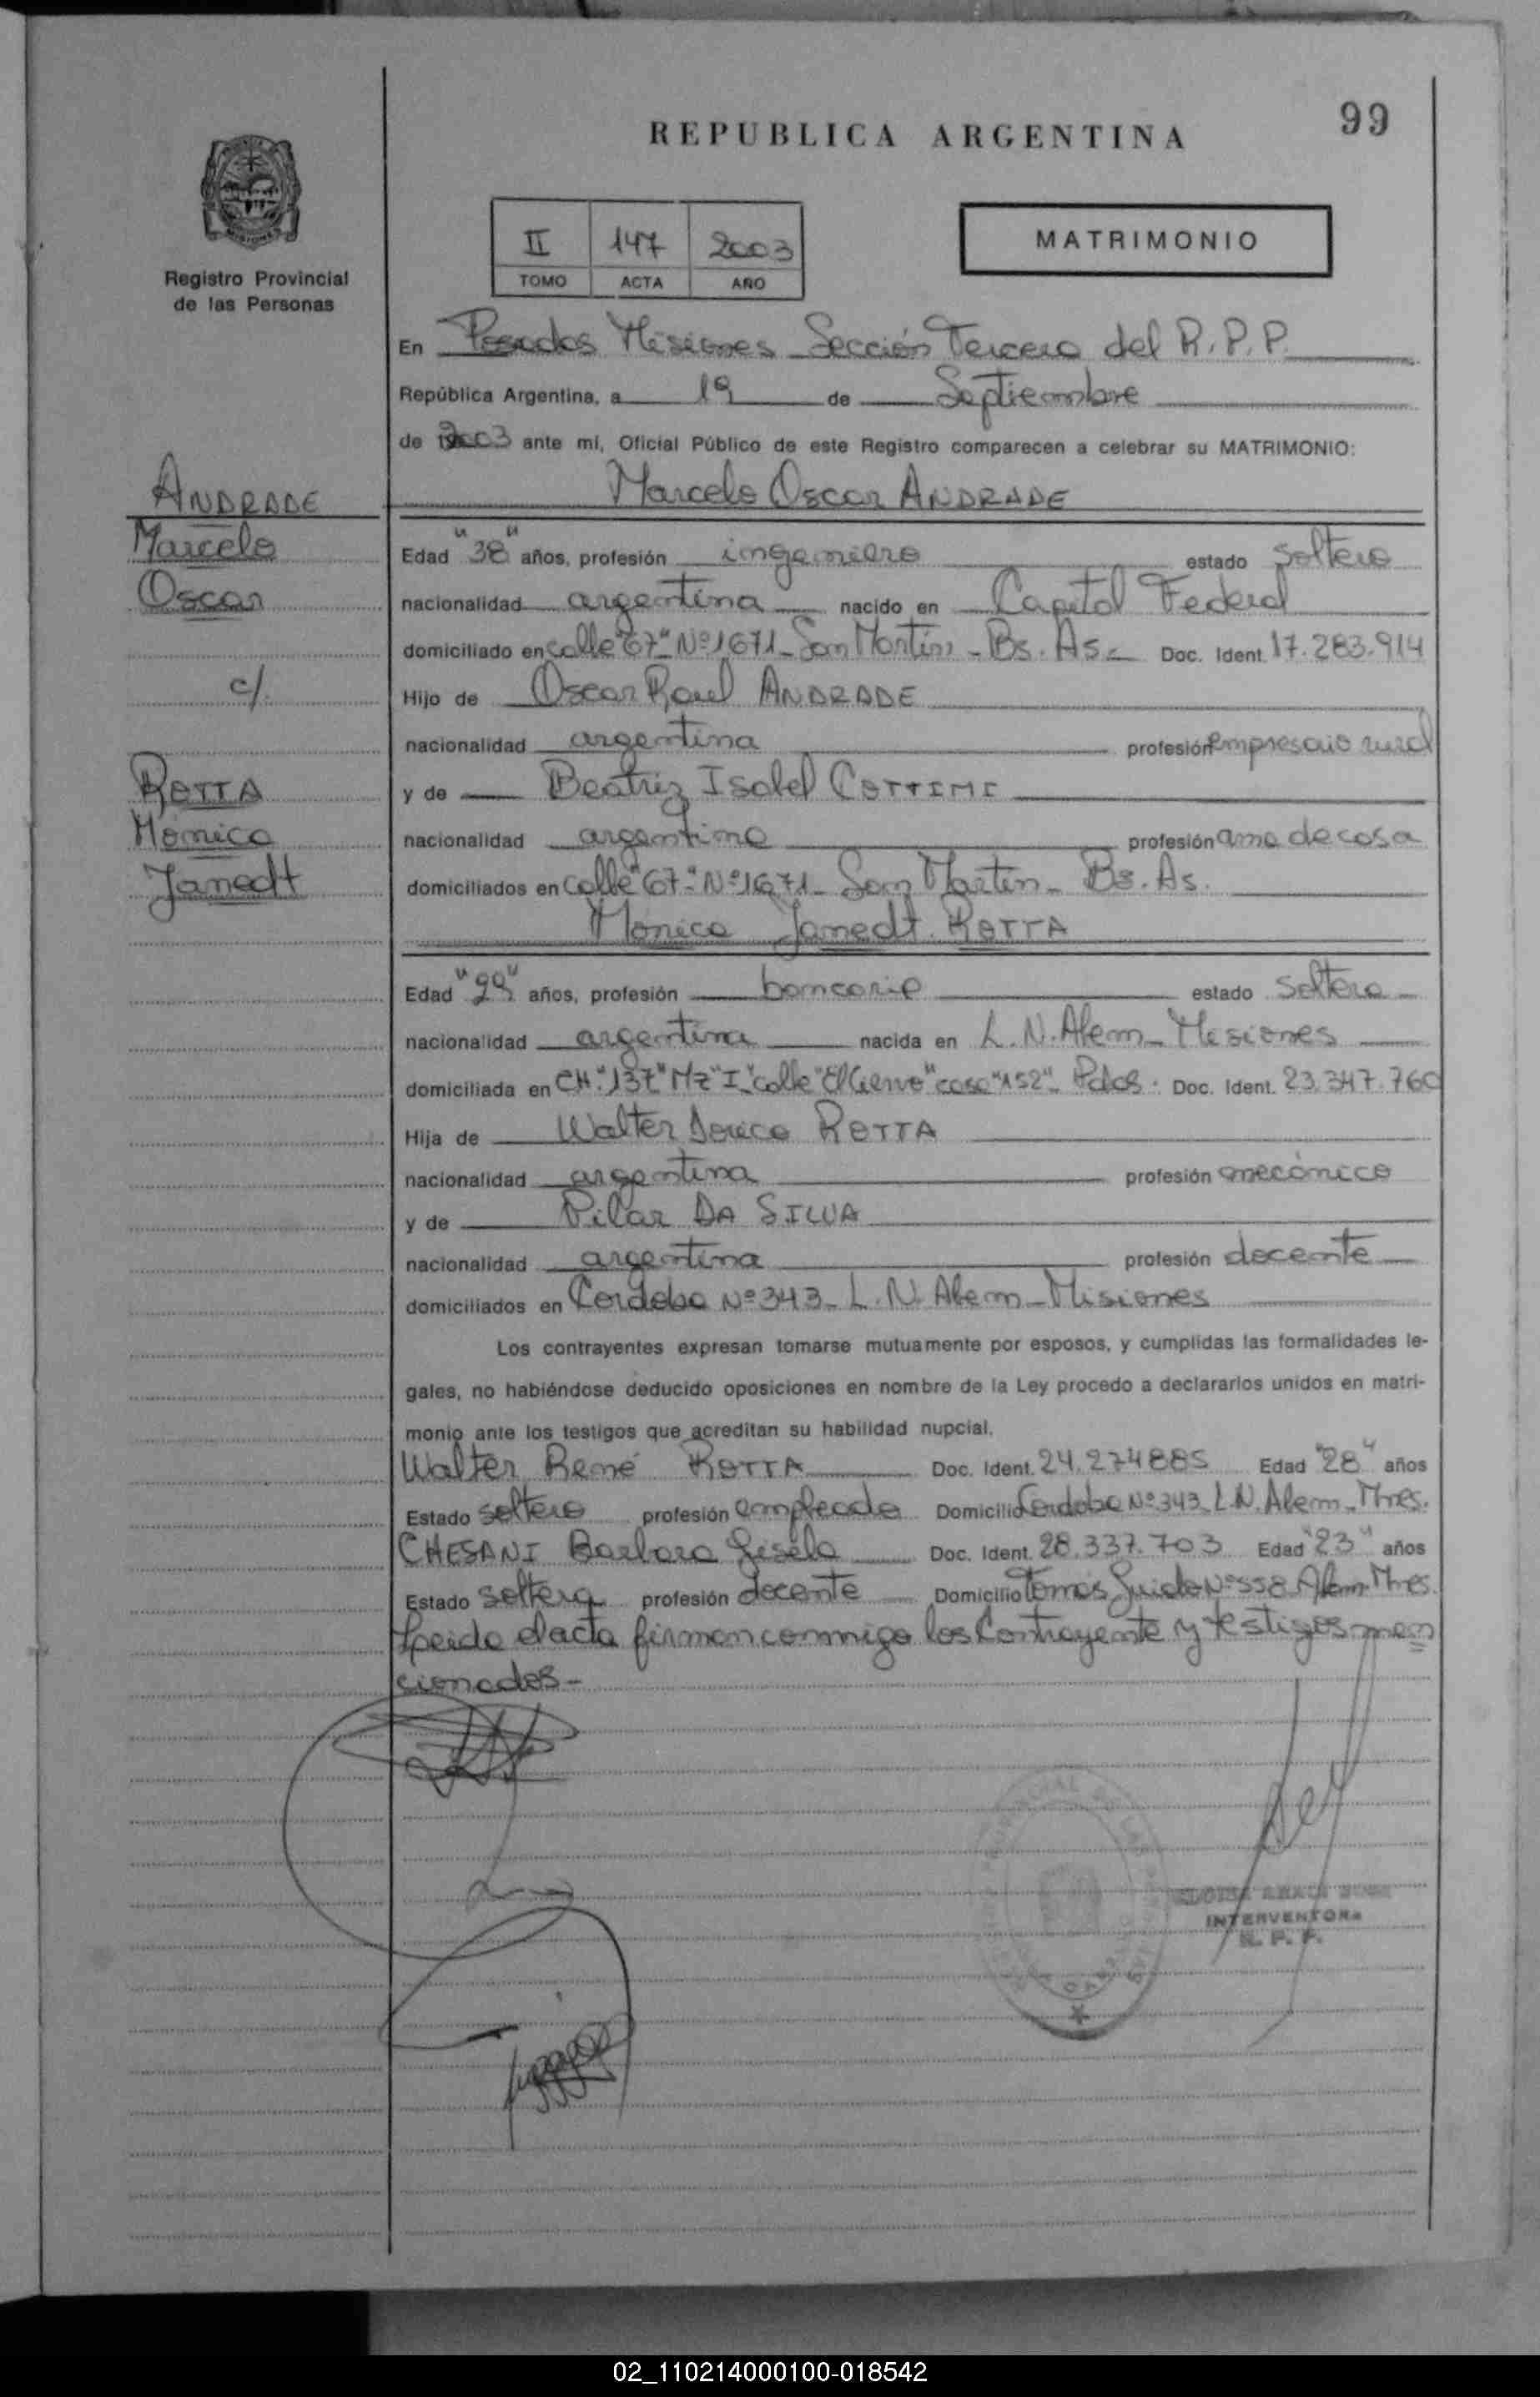 99
REPUBLICA ARGENTINA
II 147 2003
TOMO ACTA AÑO
MATRIMONIO
MISIONES
Registro Provincial
de las Personas
En Posadas Misiones Sección Tercera del R.P.P.
República Argentina, a 19 de Septiembre
de 2003 ante mí, Oficial Público de este Registro comparecen a celebrar su MATRIMONIO:
Marcelo Oscar ANDRADE
ANDRADE
Marcelo
Oscar
c/.
ROTTA
Mónica
Janedt
Edad "38" años, profesión ingeniero estado soltero
nacionalidad argentina nacido en Capital Federal
domiciliado en calle "67" Nº 1671 - San Martín - Bs. As. Doc. Ident. 17.283.914
Hijo de Oscar Raul ANDRADE
nacionalidad argentina profesión empresario rural
y de Beatriz Isabel
nacionalidad argentina profesión ama de casa
domiciliados en calle "67" Nº 1671 - San Martin - Bs. As.
Mónica Janedt ROTTA
Edad años, profesión bancaria estado soltera
nacionalidad argentina nacida en L. N. Alem - Misiones
domiciliada en CH. "137" Mz "I" calle "El Ciervo" casa "152" - Pdas. Doc. Ident. 23.347.760
Hija de Walter ROTTA
nacionalidad argentina profesión mecánico
y de Pilar DA SILVA
nacionalidad argentina profesión docente
domiciliados en Cordoba Nº 343 - L. N. Alem - Misiones
Los contrayentes expresan tomarse mutuamente por esposos, y cumplidas las formalidades le-
gales, no habiéndose deducido oposiciones en nombre de la Ley procedo a declararlos unidos en matri-
monio ante los testigos que acreditan su habilidad nupcial.
Walter René ROTTA Doc. Ident. 24.274885 Edad "28" años
Estado soltero profesión empleado Domicilio Cordoba Nº 343 L.N. Alem - Mnes.
CHESANI Barbara Gisela Doc. Ident. 28.337.703 Edad "23" años
Estado soltera profesión docente Domicilio Tomás Guido Nº 558 Alem - Mnes.
Leida el acta firman conmigo los Contrayente y testigos men
cionados -
INTERVENTORA
R. P. P.
02_110214000100-018542